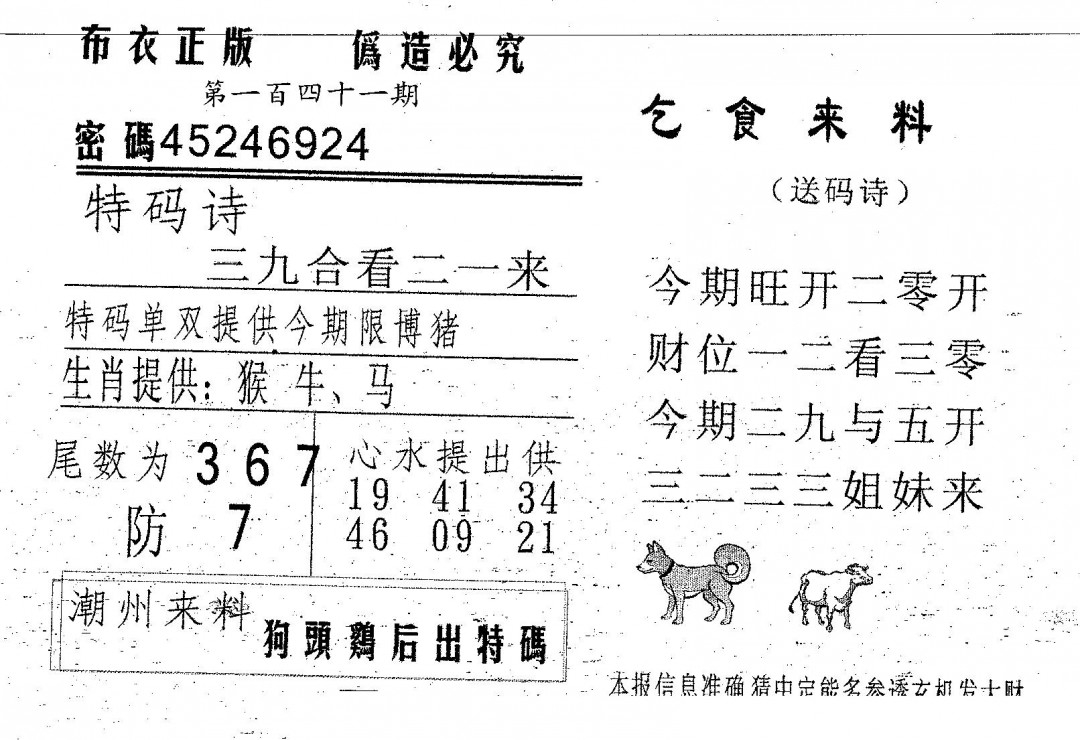 布衣正版 僞造必究
第一百四十一期
密碼45246924
特码诗
三九合看二一来
特码单双提供今期限博猪
生肖提供：猴 牛、马
尾数为 3 6 7
防 7
心水提出供
19 41 34
46 09 21
潮州来料
狗頭鷄后出特碼
乞食来料
（送码诗）
今期旺开二零开
财位一二看三零
今期二九与五开
三二三三姐妹来
本报信息准确猜中定能多参透玄机发大财